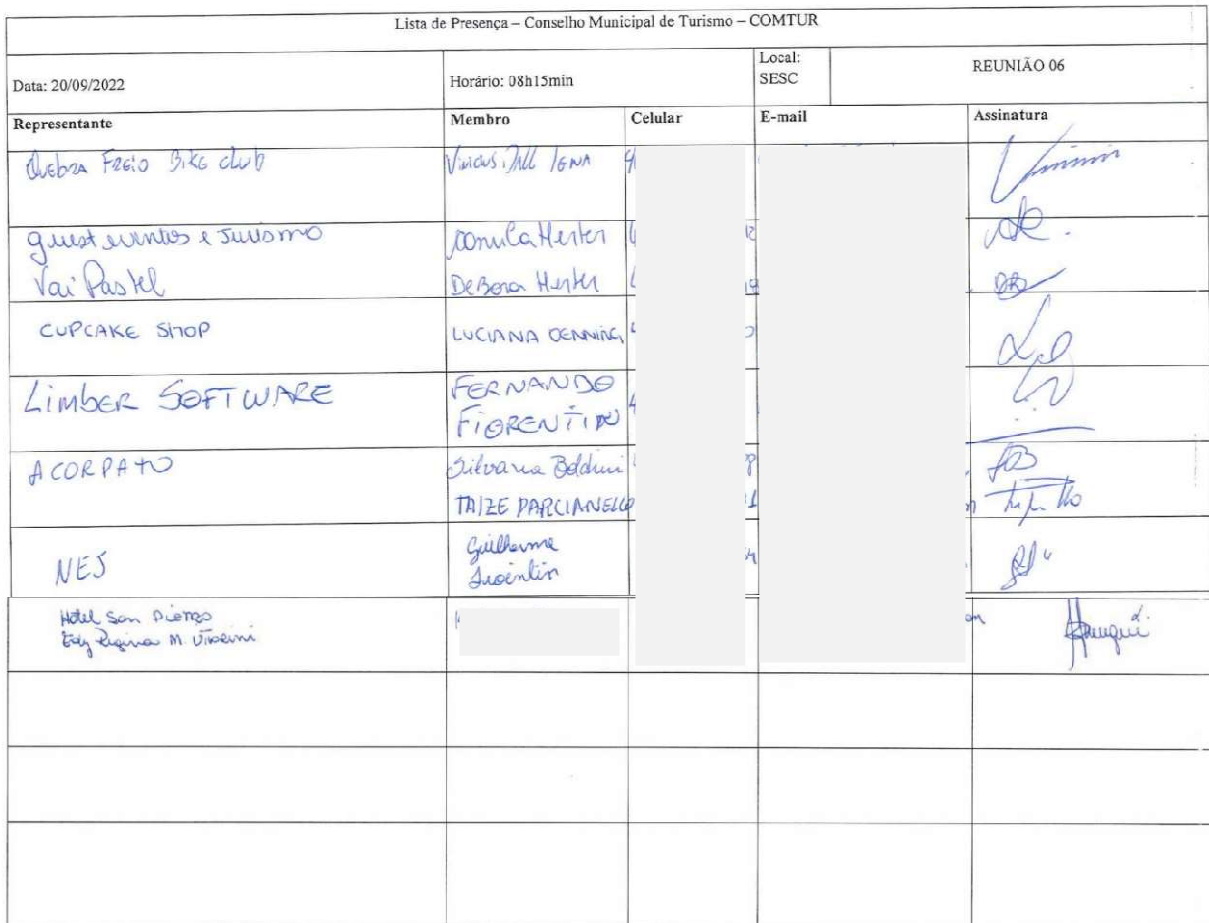 Lista de Presença – Conselho Municipal de Turismo – COMTUR
Data: 20/09/2022 Horário: 08h15min Local: SESC REUNIÃO 06
Representante Membro Celular E-mail Assinatura
Quebra Freio Bike club Vinicius Dall
guest eventos e Turismo Herter
Vai Pastel Debora Herter
CUPCAKE SHOP LUCIANA
LIMBER SOFTWARE FERNANDO
FIORENTIN
ACORPATO Silvana Boldrini
TAIZE PARCIANELLO
NEJ Guilherme
Hotel San
Regina M.